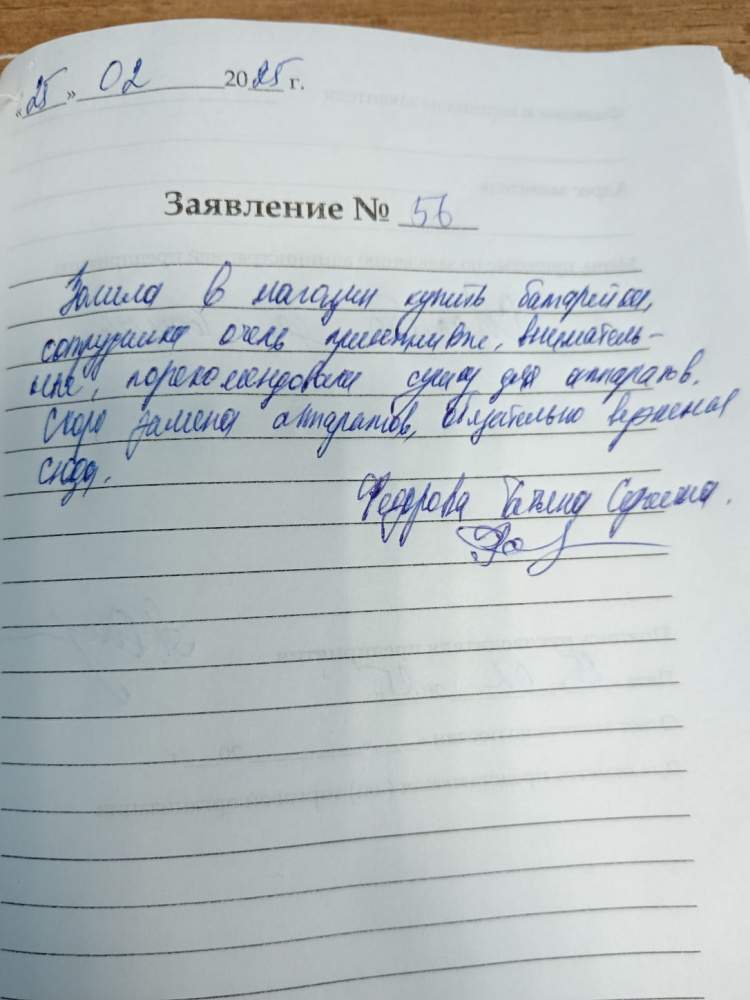 «25» 02 2025 г.
Заявление № 56
Зашла в магазин купить батарейки,
сотрудники очень приветливые, вниматель-
ные, порекомендовали сушку для аппаратов.
Скоро замена аппаратов, обязательно вернемся
сюда.
Федорова Татьяна